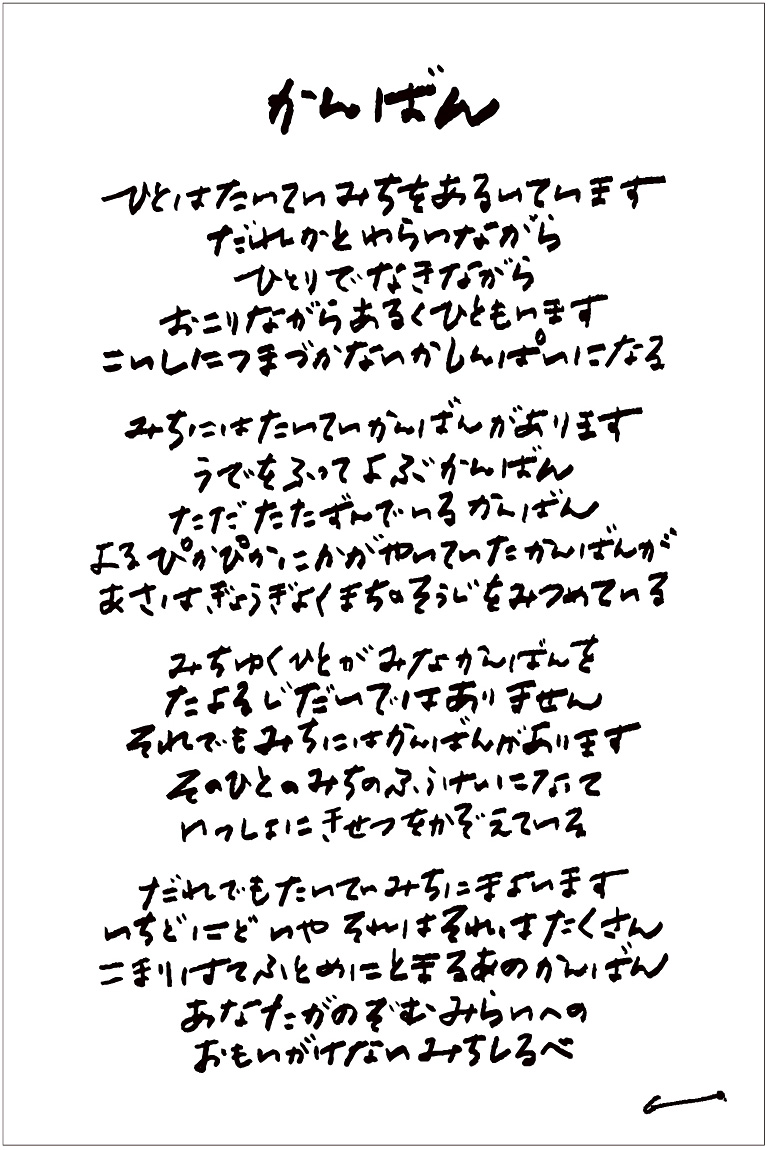 かんばん
ひとはたいていみちをあるいています
だれかとわらいながら
ひとりでなきながら
おこりながらあるくひともいます
こいしにつまづかないかしんぱいになる
みちにはたいていかんばんがあります
うでをふってよぶかんばん
ただたたずんでいるかんばん
よるぴかぴかにかがやいていたかんばんが
あさはぎょうぎよくまちのそうじをみつめている
みちゆくひとがみなかんばんを
たよるじだいではありません
それでもみちにはかんばんがあります
そのひとのみちのふうけいになって
いっしょにきせつをかぞえている
だれでもたいていみちにまよいます
いちどにどいや それはそれはたくさん
こまりはてふとめにとまるあのかんばん
あなたがのぞむみらいへの
おもいがけないみちしるべ